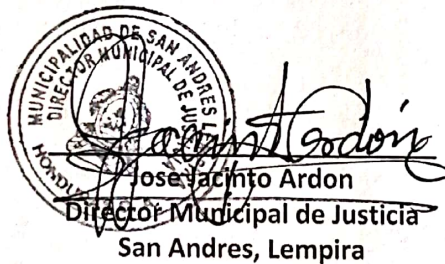 MUNICIPALIDAD DE SAN ANDRES
DIRECTOR MUNICIPAL DE JUSTICIA
Jacinto Ardon
Jose Jacinto Ardon
Director Municipal de Justicia
San Andres, Lempira